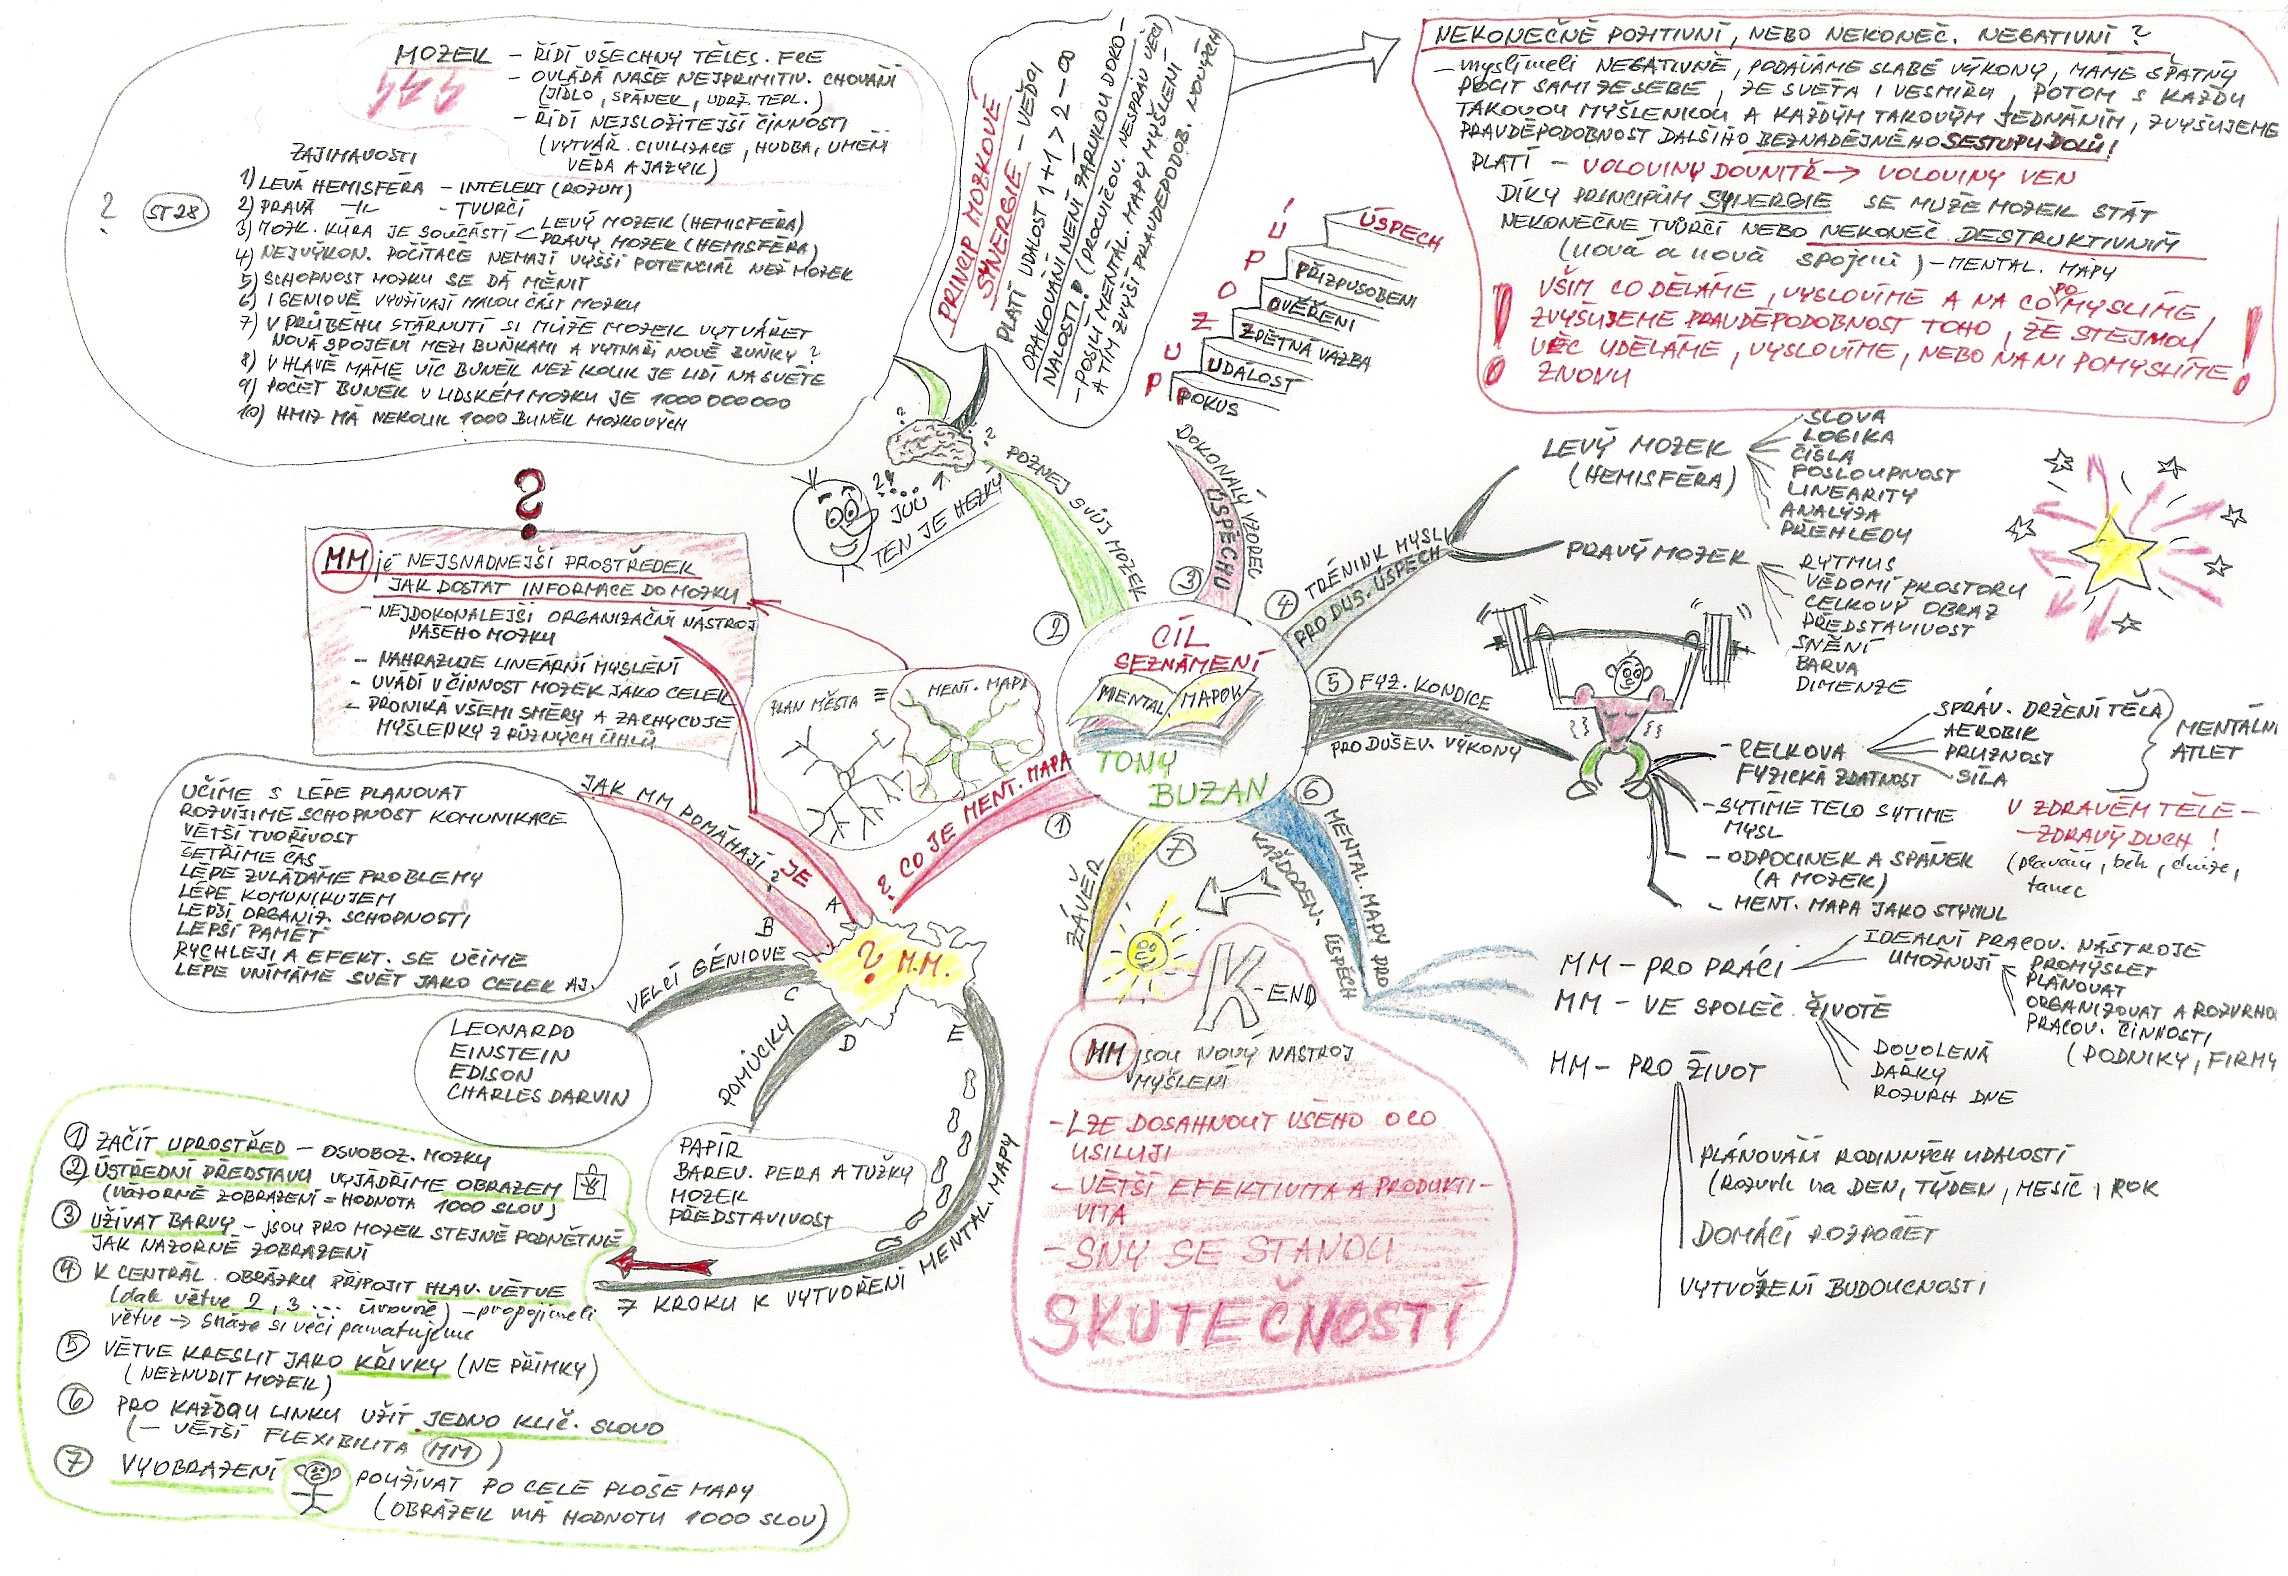 MOZEK – ŘÍDÍ VŠECHNY TĚLES. FCE
– OVLÁDÁ NAŠE NEJPRIMITIV. CHOVÁNÍ
(JÍDLO, SPÁNEK, UDRŽ. TEPL.)
– ŘÍDÍ NEJSLOŽITEJŠÍ ČINNOSTI
(VYTVÁŘ. CIVILIZACE, HUDBA, UMĚNÍ
VĚDA A JAZYK)
ZAJIMAVOSTI
? ST 28
1) LEVÁ HEMISFÉRA – INTELEKT (ROZUM)
2) PRAVÁ –II– – TVURČÍ
3) MOZK. KŮRA JE SOUČÁSTÍ < LEVÝ MOZEK (HEMISFÉRA)
PRAVÝ MOZEK (HEMISFÉRA)
4) NEJVÝKON. POČÍTAČE NEMAJÍ VYŠŠÍ POTENCIÁL NEŽ MOZEK
5) SCHOPNOST MOZKU SE DÁ MĚNIT
6) I GENIOVÉ VYUŽÍVAJÍ MALOU ČÁST MOZKU
7) V PRŮBĚHU STÁRNUTÍ SI MŮŽE MOZEK VYTVÁŘET
NOVÁ SPOJENÍ MEZI BUŇKAMI A VYTVAŘÍ NOVÉ BUŇKY ?
8) V HLAVĚ MÁME VÍC BUNĚK NEŽ KOLIK JE LIDÍ NA SVĚTE
9) POČET BUNĚK V LIDSKÉM MOZKU JE 1000 000 000
10) HMYZ MÁ NĚKOLIK 1000 BUNĚK MOZKOVÝCH
PRINCIP MOZKOVÉ
SYNERGIE – VĚDCI
PLATÍ UDALOST 1+1 > 2 – ∞
OPAKOVÁNÍ NENÍ ZÁRUKOU DOKO-
NALOSTI! (PROCVIČOV. NESPRÁV. VĚCI)
– POSILŮJ MENTÁL. MAPY MYŠLENÍ
A TÍM ZVYŠ PRAVDĚPODOB. NOVÝCH
NEKONEČNĚ POZITIVNÍ, NEBO NEKONEČ. NEGATIVNÍ ?
– myslímeli NEGATIVNĚ, PODÁVÁME SLABÉ VÝKONY, MAME ŠPATNÝ
POCIT SAMI ZE SEBE, ZE SVĚTA I VESMÍRU, POTOM S KAŽDU
TAKOVOU MYŠLENKOU A KAŽDÝM TAKOVÝM JEDNÁNÍM, ZVYŠUJEME
PRAVDĚPODOBNOST DALŠÍHO BEZNADĚJNÉHO SESTUPU DOLŮ!
PLATÍ – VOLOVINY DOVNITŘ → VOLOVINY VEN
DÍKY PRINCIPŮM SYNERGIE SE MUŽE MOZEK STÁT
NEKONEČNE TVŮRČÍ NEBO NEKONEČ. DESTRUKTIVNÍM
(nová a nová spojení) – MENTAL. MAPY
VŠÍM CO DĚLÁME, VYSLOVÍME A NA CO PO MYSLÍME
ZVYŠUJEME PRAVDĚPODOBNOST TOHO, ŽE STEJNOU
VĚC UDĚLÁME, VYSLOVÍME, NEBO NA NI POMYSLÍME
ZNOVU
Ú
P
O
Z
U
P
ÚSPĚCH
PŘIZPUSOBENÍ
OVĚŘENÍ
ZPĚTNÁ VAZBA
UDÁLOST
POKUS
JŮŮ
TEN JE HEZKÝ
② POZNEJ SVŮJ MOZEK
③ DOKONALÝ VZOREC
ÚSPĚCHU
④ TRÉNINK MYSLI
PRO DUŠ. ÚSPĚCH
LEVÝ MOZEK
(HEMISFÉRA)
SLOVA
LOGIKA
ČÍSLA
POSLOUPNOST
LINEARITY
ANALÝZA
PŘEHLEDY
PRAVÝ MOZEK
RYTMUS
VĚDOMÍ PROSTORU
CELKOVÝ OBRAZ
PŘEDSTAVIVOST
SNĚNÍ
BARVA
DIMENZE
CÍL
SEZNÁMENÍ
MENTAL. MAPOU
TONY
BUZAN
⑤ FYZ. KONDICE
PRO DUŠEV. VÝKONY
– CELKOVA
FYZICKÁ ZDATNOST
SPRÁV. DRŽENÍ TĚLA
AEROBIK
PRUŽNOST
SÍLA
MENTÁLNÍ
ATLET
– SYTÍME TĚLO SYTIME
MYSL
– ODPOČINEK A SPÁNEK
(A MOZEK)
– MENT. MAPA JAKO STYMUL
V ZDRAVÉM TĚLE –
– ZDRAVÝ DUCH !
(plavání, běh, chůze,
tanec
⑥ MENTAL. MAPY PRO
KAŽDODEN. ÚSPĚCH
MM – PRO PRÁCI
IDEALNÍ PRACOV. NÁSTROJE
UMOŽŇUJÍ
PROMÝŠLET
PLÁNOVAT
ORGANIZOVAT A ROZVRHO
PRACOV. ČINNOSTI
(PODNIKY, FIRMY
MM – VE SPOLEČ. ŽIVOTĚ
DOVOLENÁ
DARKY
ROZVRH DNE
MM – PRO ŽIVOT
PLÁNOVÁNÍ RODINNÝCH UDÁLOSTÍ
(Rozvrh na DEN, TÝDEN, MESÍC, ROK
DOMÁCÍ ROZPOČET
VYTVOŽENÍ BUDOUCNOSTI
⑦ ZÁVĚR
K-END
MM jsou NOVÝ NASTROJ
MYŠLENÍ
– LZE DOSAHNOUT VŠEHO O CO
USILUJI
– VĚTŠÍ EFEKTIVITA A PRODUKTI-
VITA
– SNY SE STANOU
SKUTEČNOSTÍ
① CO JE MENT. MAPA
?
PLAN MĚSTA ≡ MENT. MAPA
?
MM je NEJSNADNEJŠÍ PROSTŘEDEK
JAK DOSTAT INFORMACE DO MOZKU
– NEJDOKONALEJŠÍ ORGANIZAČNÍ NÁSTROJ
NAŠEHO MOZKU
– NAHRAZUJE LINEÁRNÍ MYSLENÍ
– UVÁDÍ V ČINNOST MOZEK JAKO CELEK
– PRONIKÁ VŠEMI SMĚRY A ZACHYCUJE
MYŠLENKY Z RŮZNÝCH ÚHLŮ
? M.M.
A JE
B JAK MM POMÁHAJÍ ?
UČÍME S LÉPE PLANOVAT
ROZVÍJIME SCHOPNOST KOMUNIKACE
VĚTŠÍ TVOŘIVOST
ŠETŘÍME ČAS
LÉPE ZVLÁDÁME PROBLEMY
LÉPE KOMUNIKUJEM
LEPŠÍ ORGANIZ. SCHOPNOSTI
LEPŠÍ PAMĚŤ
RYCHLEJI A EFEKT. SE UČÍME
LÉPE VNÍMÁME SVĚT JAKO CELEK AJ.
C VELCÍ GÉNIOVE
LEONARDO
EINSTEIN
EDISON
CHARLES DARVIN
D POMŮCKY
PAPÍR
BAREV. PERA A TUŽKY
MOZEK
PŘEDSTAVIVOST
E
7 KROKU K VYTVOŘENÍ MENTAL. MAPY
① ZAČÍT UPROSTŘED – OSVOBOZ. MOZKU
② ÚSTŘEDNÍ PŘEDSTAVU VYJÁDŘÍME OBRAZEM
(NÁZORNÉ ZOBRAZENÍ = HODNOTA 1000 SLOV)
③ UŽÍVAT BARVY – jsou PRO MOZEK STEJNĚ PODNĚTNÉ
JAK NÁZORNÉ ZOBRAZENÍ
④ K CENTRÁL. OBRÁZKU PŘIPOJIT HLAV. VĚTVE
(dale větve 2, 3 ... úrovně) – propojímeli
větve → snáze si věci pamatujeme
⑤ VĚTVE KRESLIT JAKO KŘIVKY (NE PŘÍMKY)
(NEZNUDIT MOZEK)
⑥ PRO KAŽDOU LINKU UŽÍT JEDNO KLÍČ. SLOVO
(– VĚTŠÍ FLEXIBILITA MM)
⑦ VYOBRAZENÍ POUŽÍVAT PO CELÉ PLOŠE MAPY
(OBRÁZEK MÁ HODNOTU 1000 SLOV)